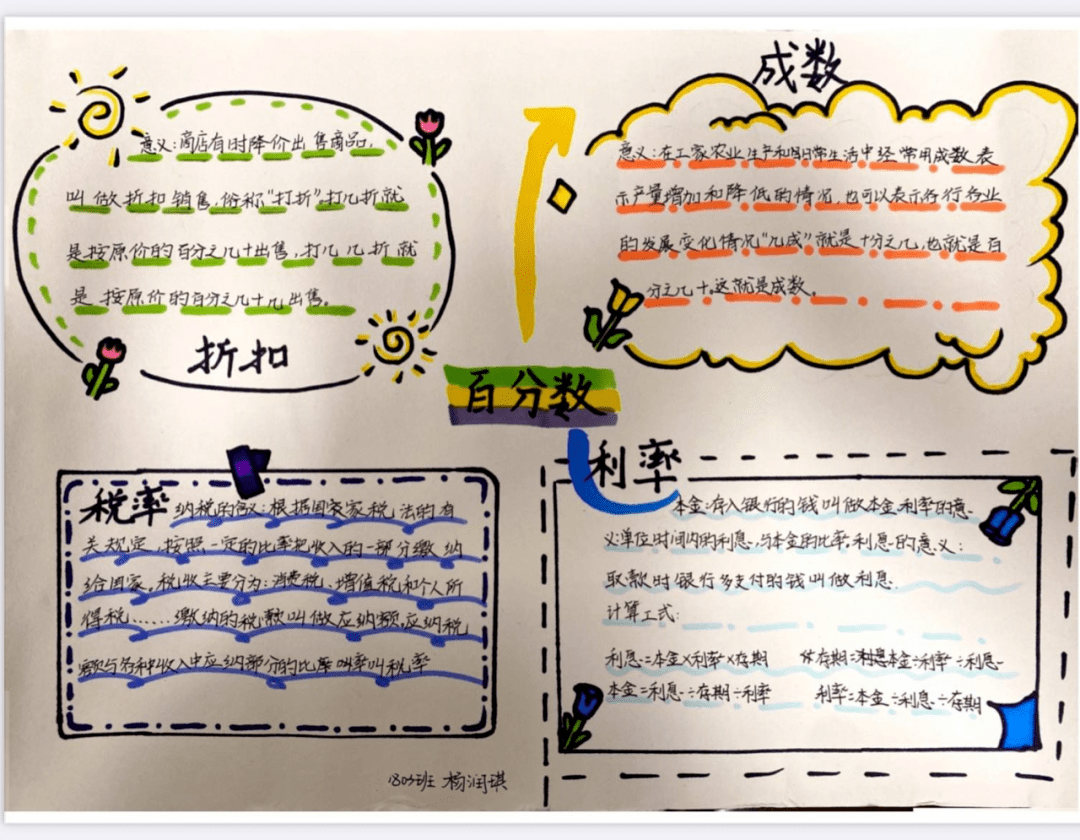 意义:商店有时降价出售商品,
叫做折扣销售,俗称“打折”。打几折就
是按原价的百分之几十出售,打几几折就
是按原价的百分之几十几出售。
折扣
成数
意义:在工家农业生产和日常生活中经常用成数表
示产量增加和降低的情况,也可以表示各行各业
的发展变化情况“几成”就是十分之几,也就是百
分之几十。这就是成数。
百分数
税率
纳税的意义:根据国家税法的有
关规定,按照一定的比率把收入的一部分缴纳
给国家。税收主要分为:消费税、增值税和个人所
得税……缴纳的税款叫做应纳额,应纳税
额与各种收入中应纳部分的比率叫率叫税率
利率
本金:存入银行的钱叫做本金,利率的意
义:单位时间内的利息,与本金的比率,利息的意义:
取款时银行多支付的钱叫做利息.
计算工式:
利息=本金×利率×存期
存期=利息本金÷利率÷利息
本金=利息÷存期÷利率
利率=本金÷利息÷存期
1803班 杨润琪